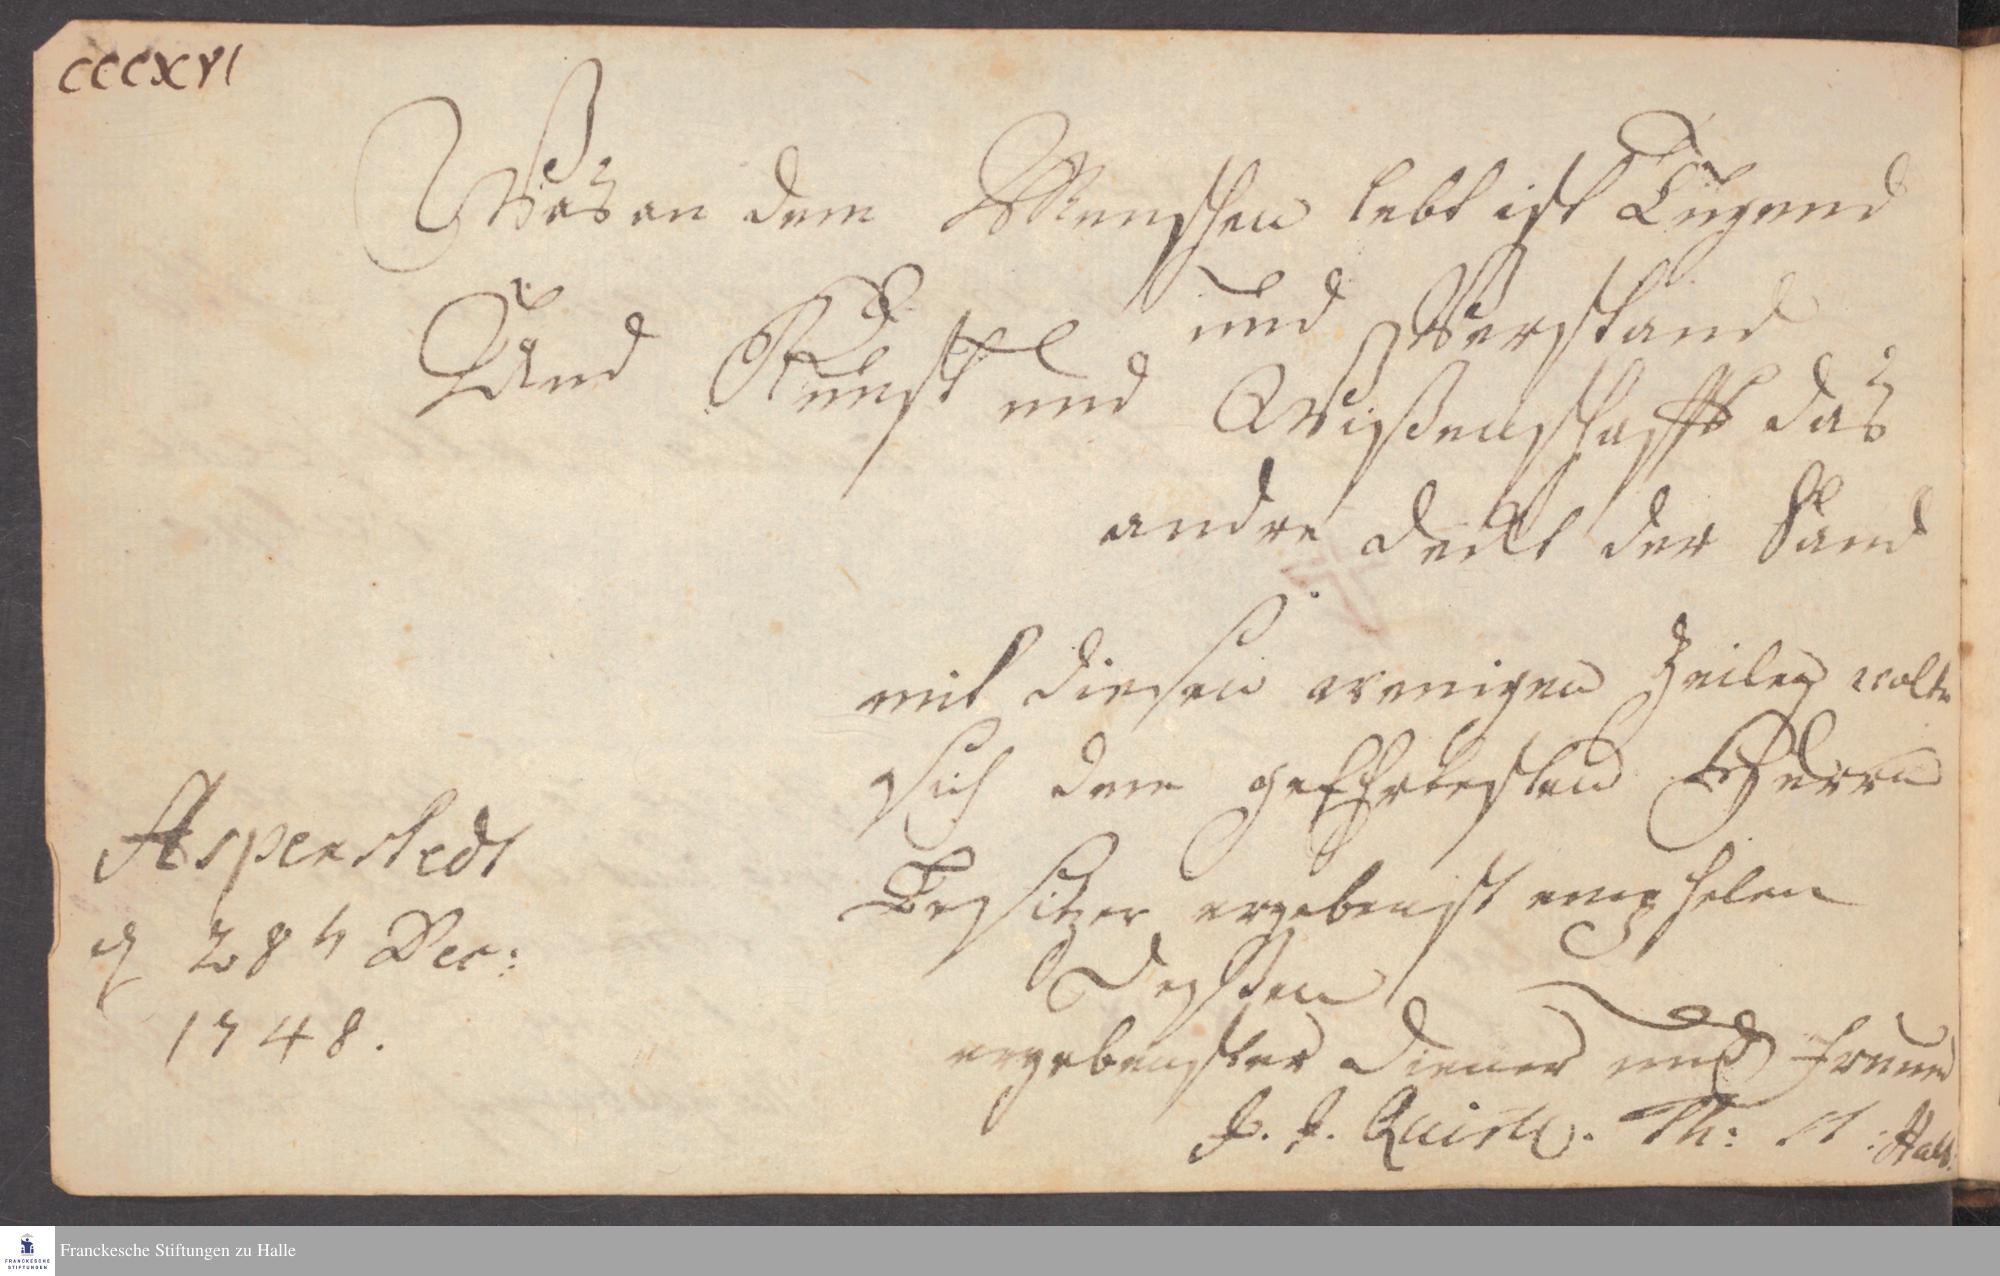 CCCXVI
Was an dem Menschen lebt ist Tugend
und Verstand
Und Kunst und Wißenschafft das
andre deckt der Sand
mit diesen wenigen Zeilen wolte
sich dem geEhrtesten Herrn
Besitzer ergebenst empfelen
Deßen
ergebenster Diener und Freund
J. J. Th: Halb.
Aspenstedt
d 28 Dec:
1748.
Franckesche Stiftungen zu Halle
FRANCKESCHE
STIFTUNGEN